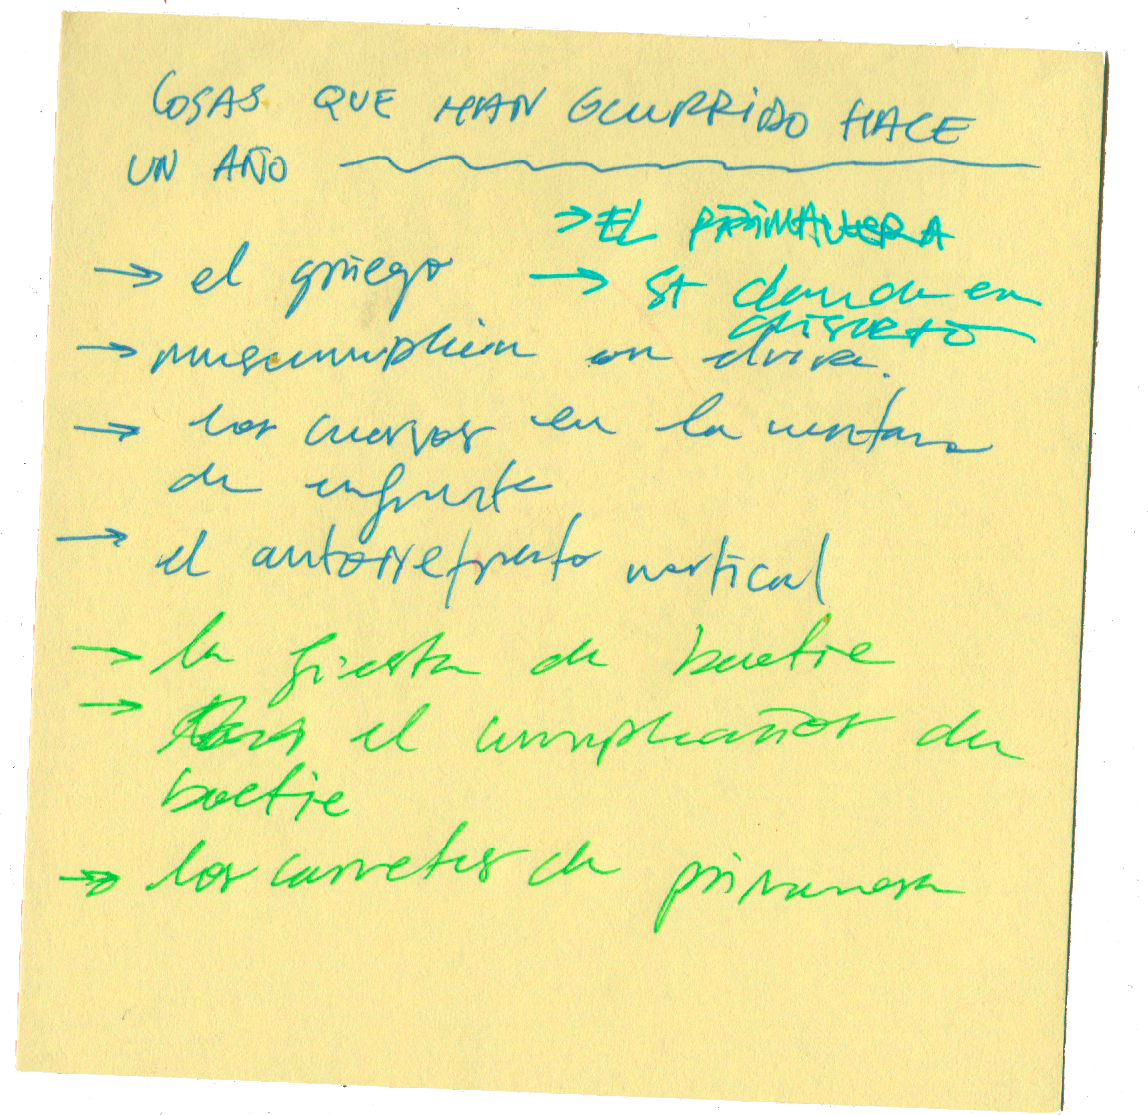 COSAS QUE HAN OCURRIDO HACE
UN AÑO
→ EL PRIMAVERA
→ el griego
→ St donde en
discreto
→ en
→ los cuervos en la ventana
de enfrente
→ el autorretrato vertical
→ la fiesta de boetie
→ el cumpleaños de
boetie
→ los carretes de primavera